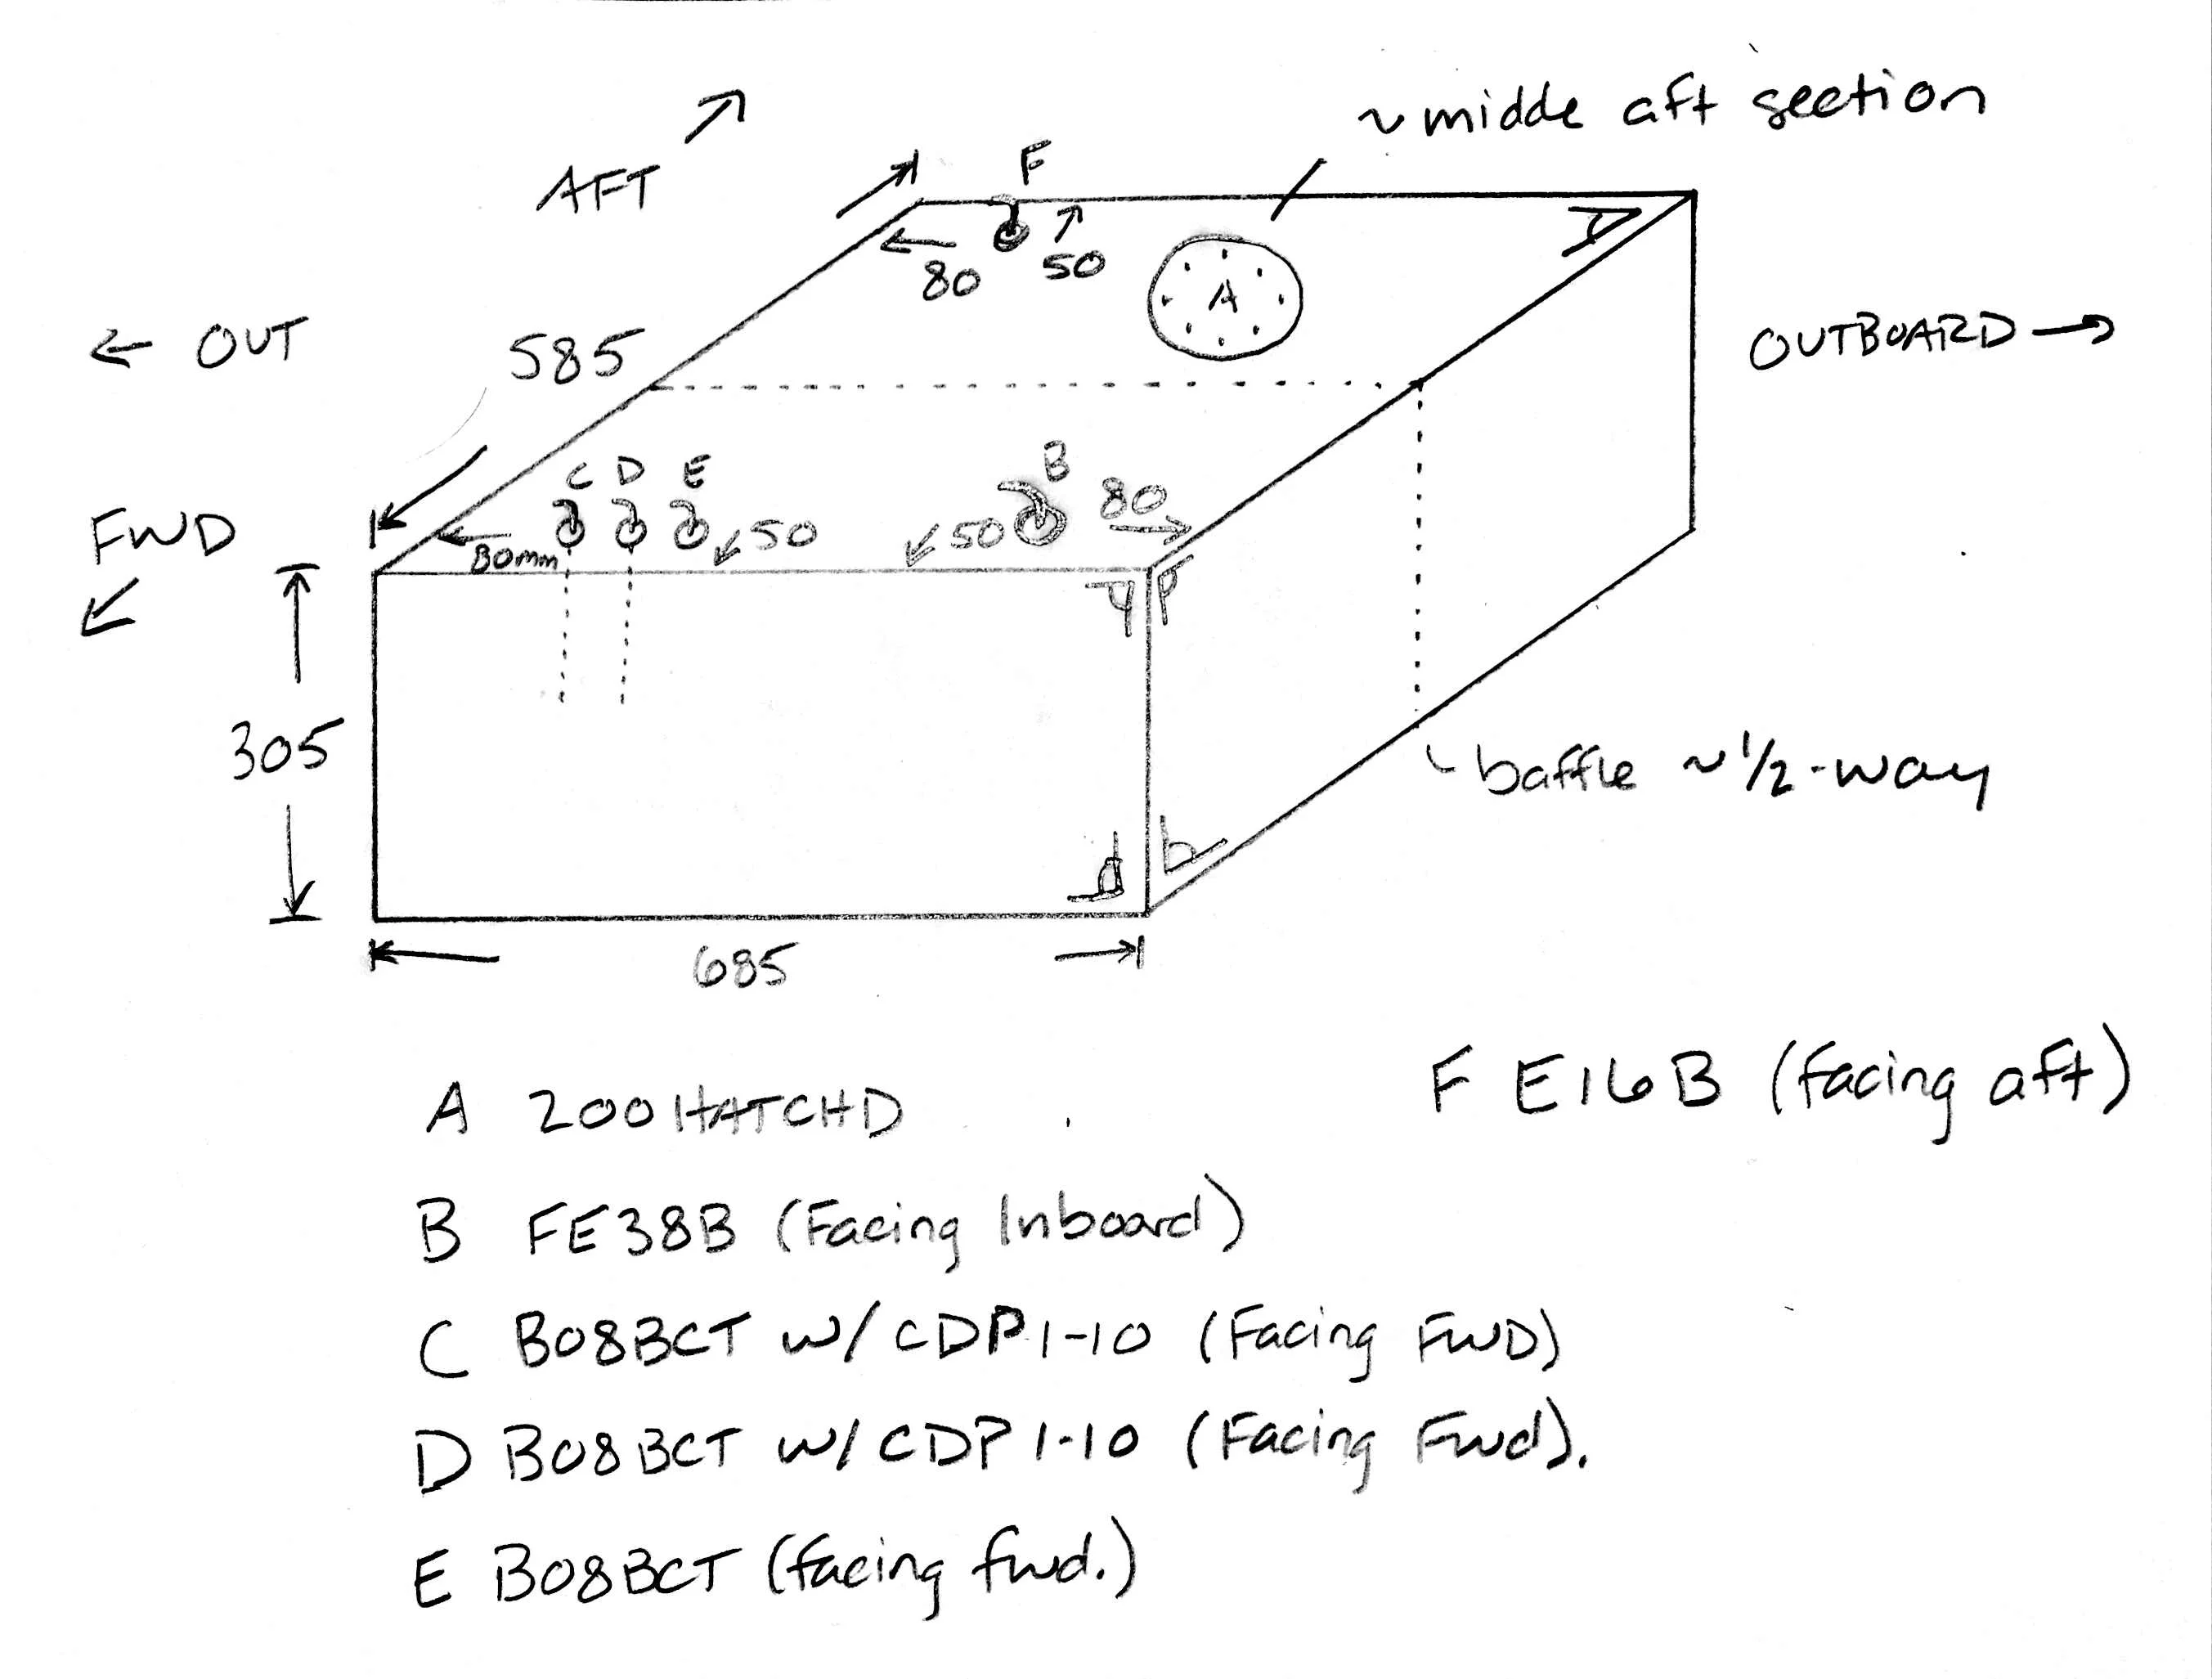 ~midde aft section
AFT
F
80
50
A
← OUT
585
OUTBOARD →
C D E
B
80
FWD
80mm
50
50
305
baffle ~1/2-way
685
A 200HATCHD
F E16B (facing aft)
B FE38B (Facing Inboard)
C B08BCT w/ CDP1-10 (Facing FWD)
D B08BCT w/ CDP1-10 (Facing Fwd).
E B08BCT (facing fwd.)